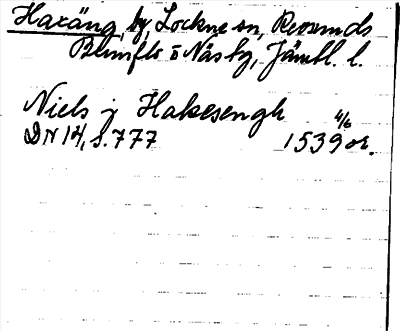 Haxäng, by, Lockne sn, Revsunds
Brunflo o Näs tg, Jämtl. l.
Niels j Hakesengh 4/6
DN 14, s. 777 1539 or.